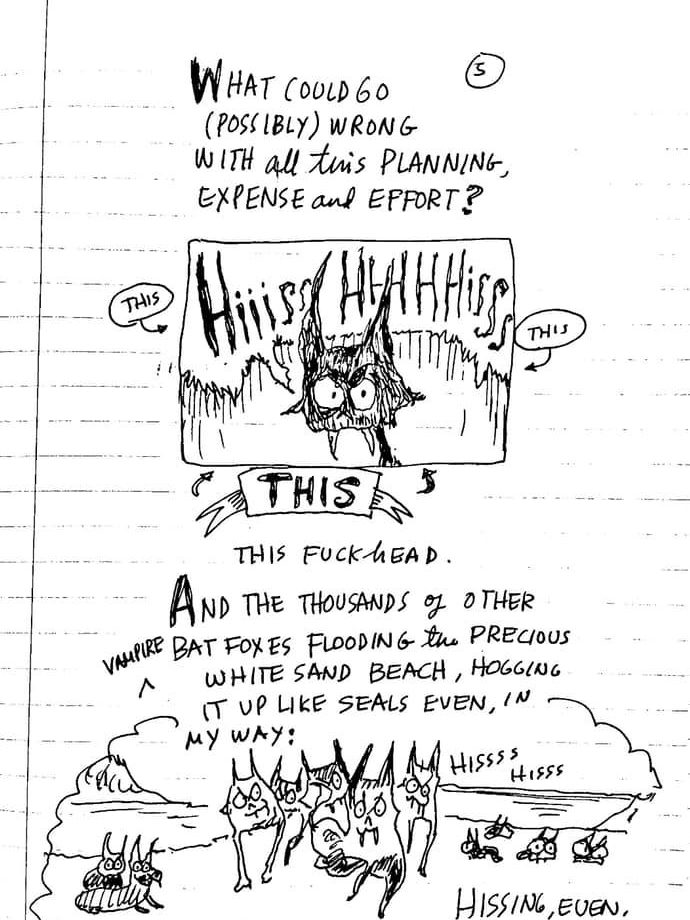 5
WHAT COULD GO
(POSSIBLY) WRONG
WITH all this PLANNING,
EXPENSE and EFFORT?
THIS
Hiiiss HHHHHisss
THIS
THIS
THIS FUCKhEAD.
AND THE THOUSANDS of OTHER
VAMPIRE BAT FOXES FLOODING the PRECIOUS
WHITE SAND BEACH, HOGGING
IT UP LIKE SEALS EVEN, IN
MY WAY:
HISSSS
HISSS
HISSING, EVEN.